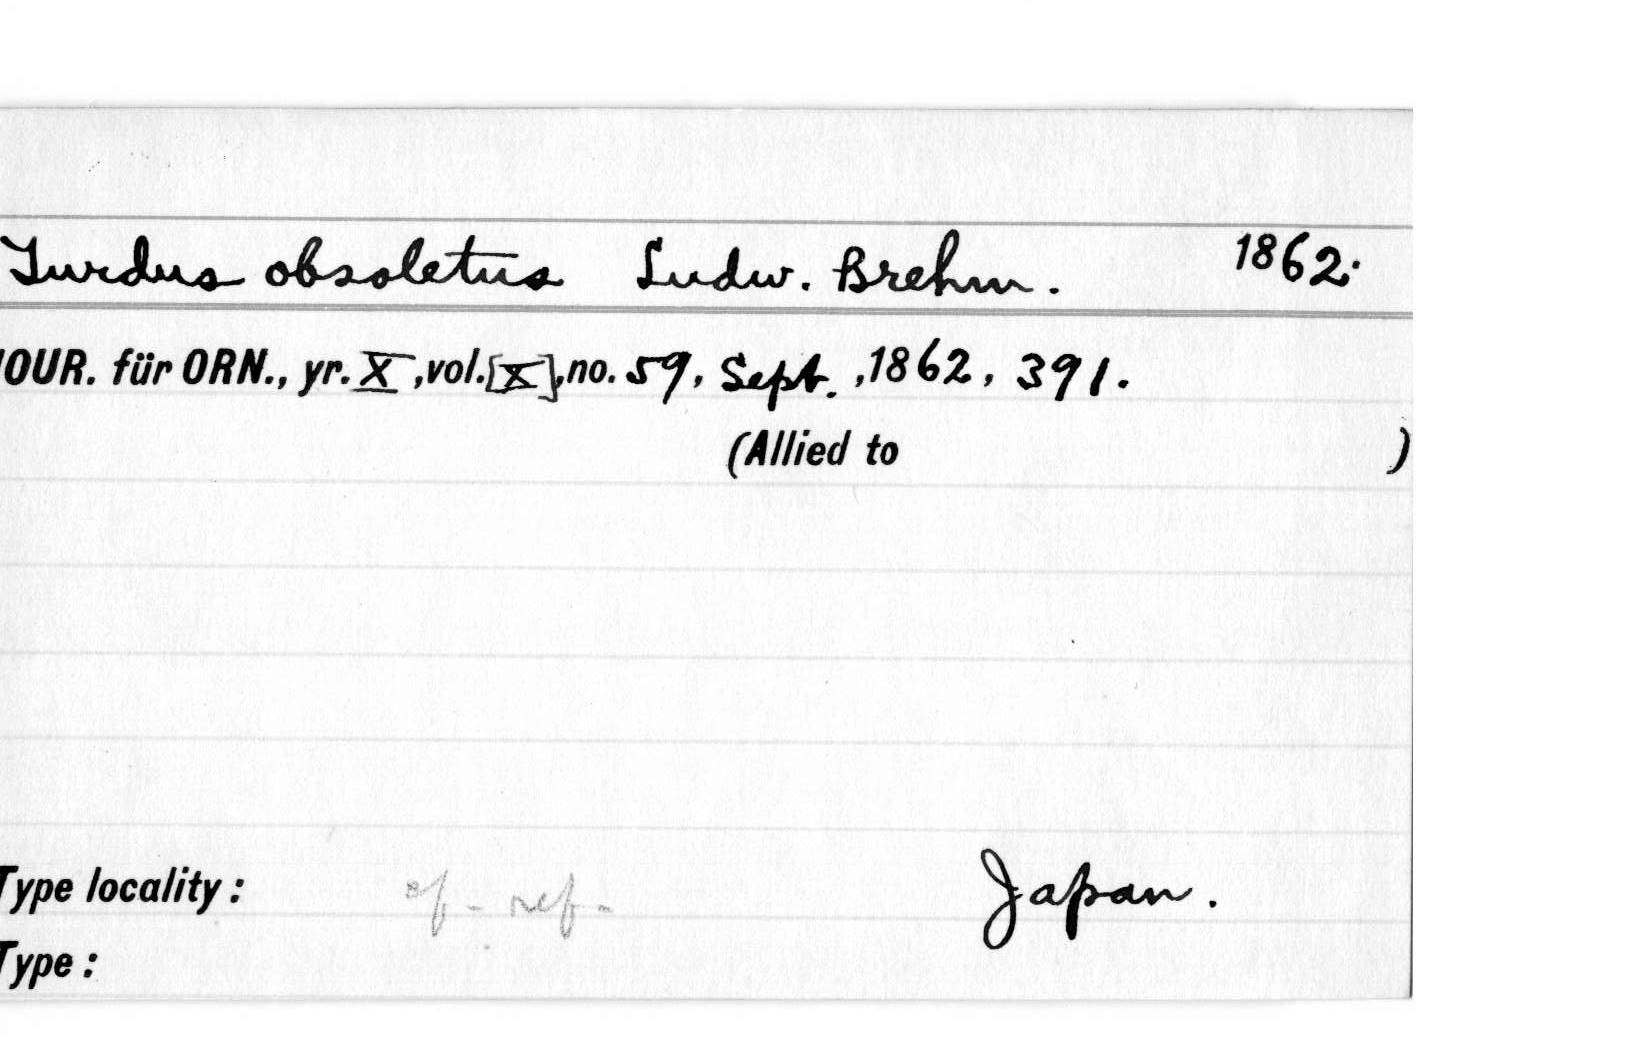 Turdus obsoletus Ludw. Brehm. 1862.
JOUR. für ORN., yr. X, vol. [X], no. 59, Sept., 1862, 391.
(Allied to )
Type locality: cf. ref. Japan.
Type: